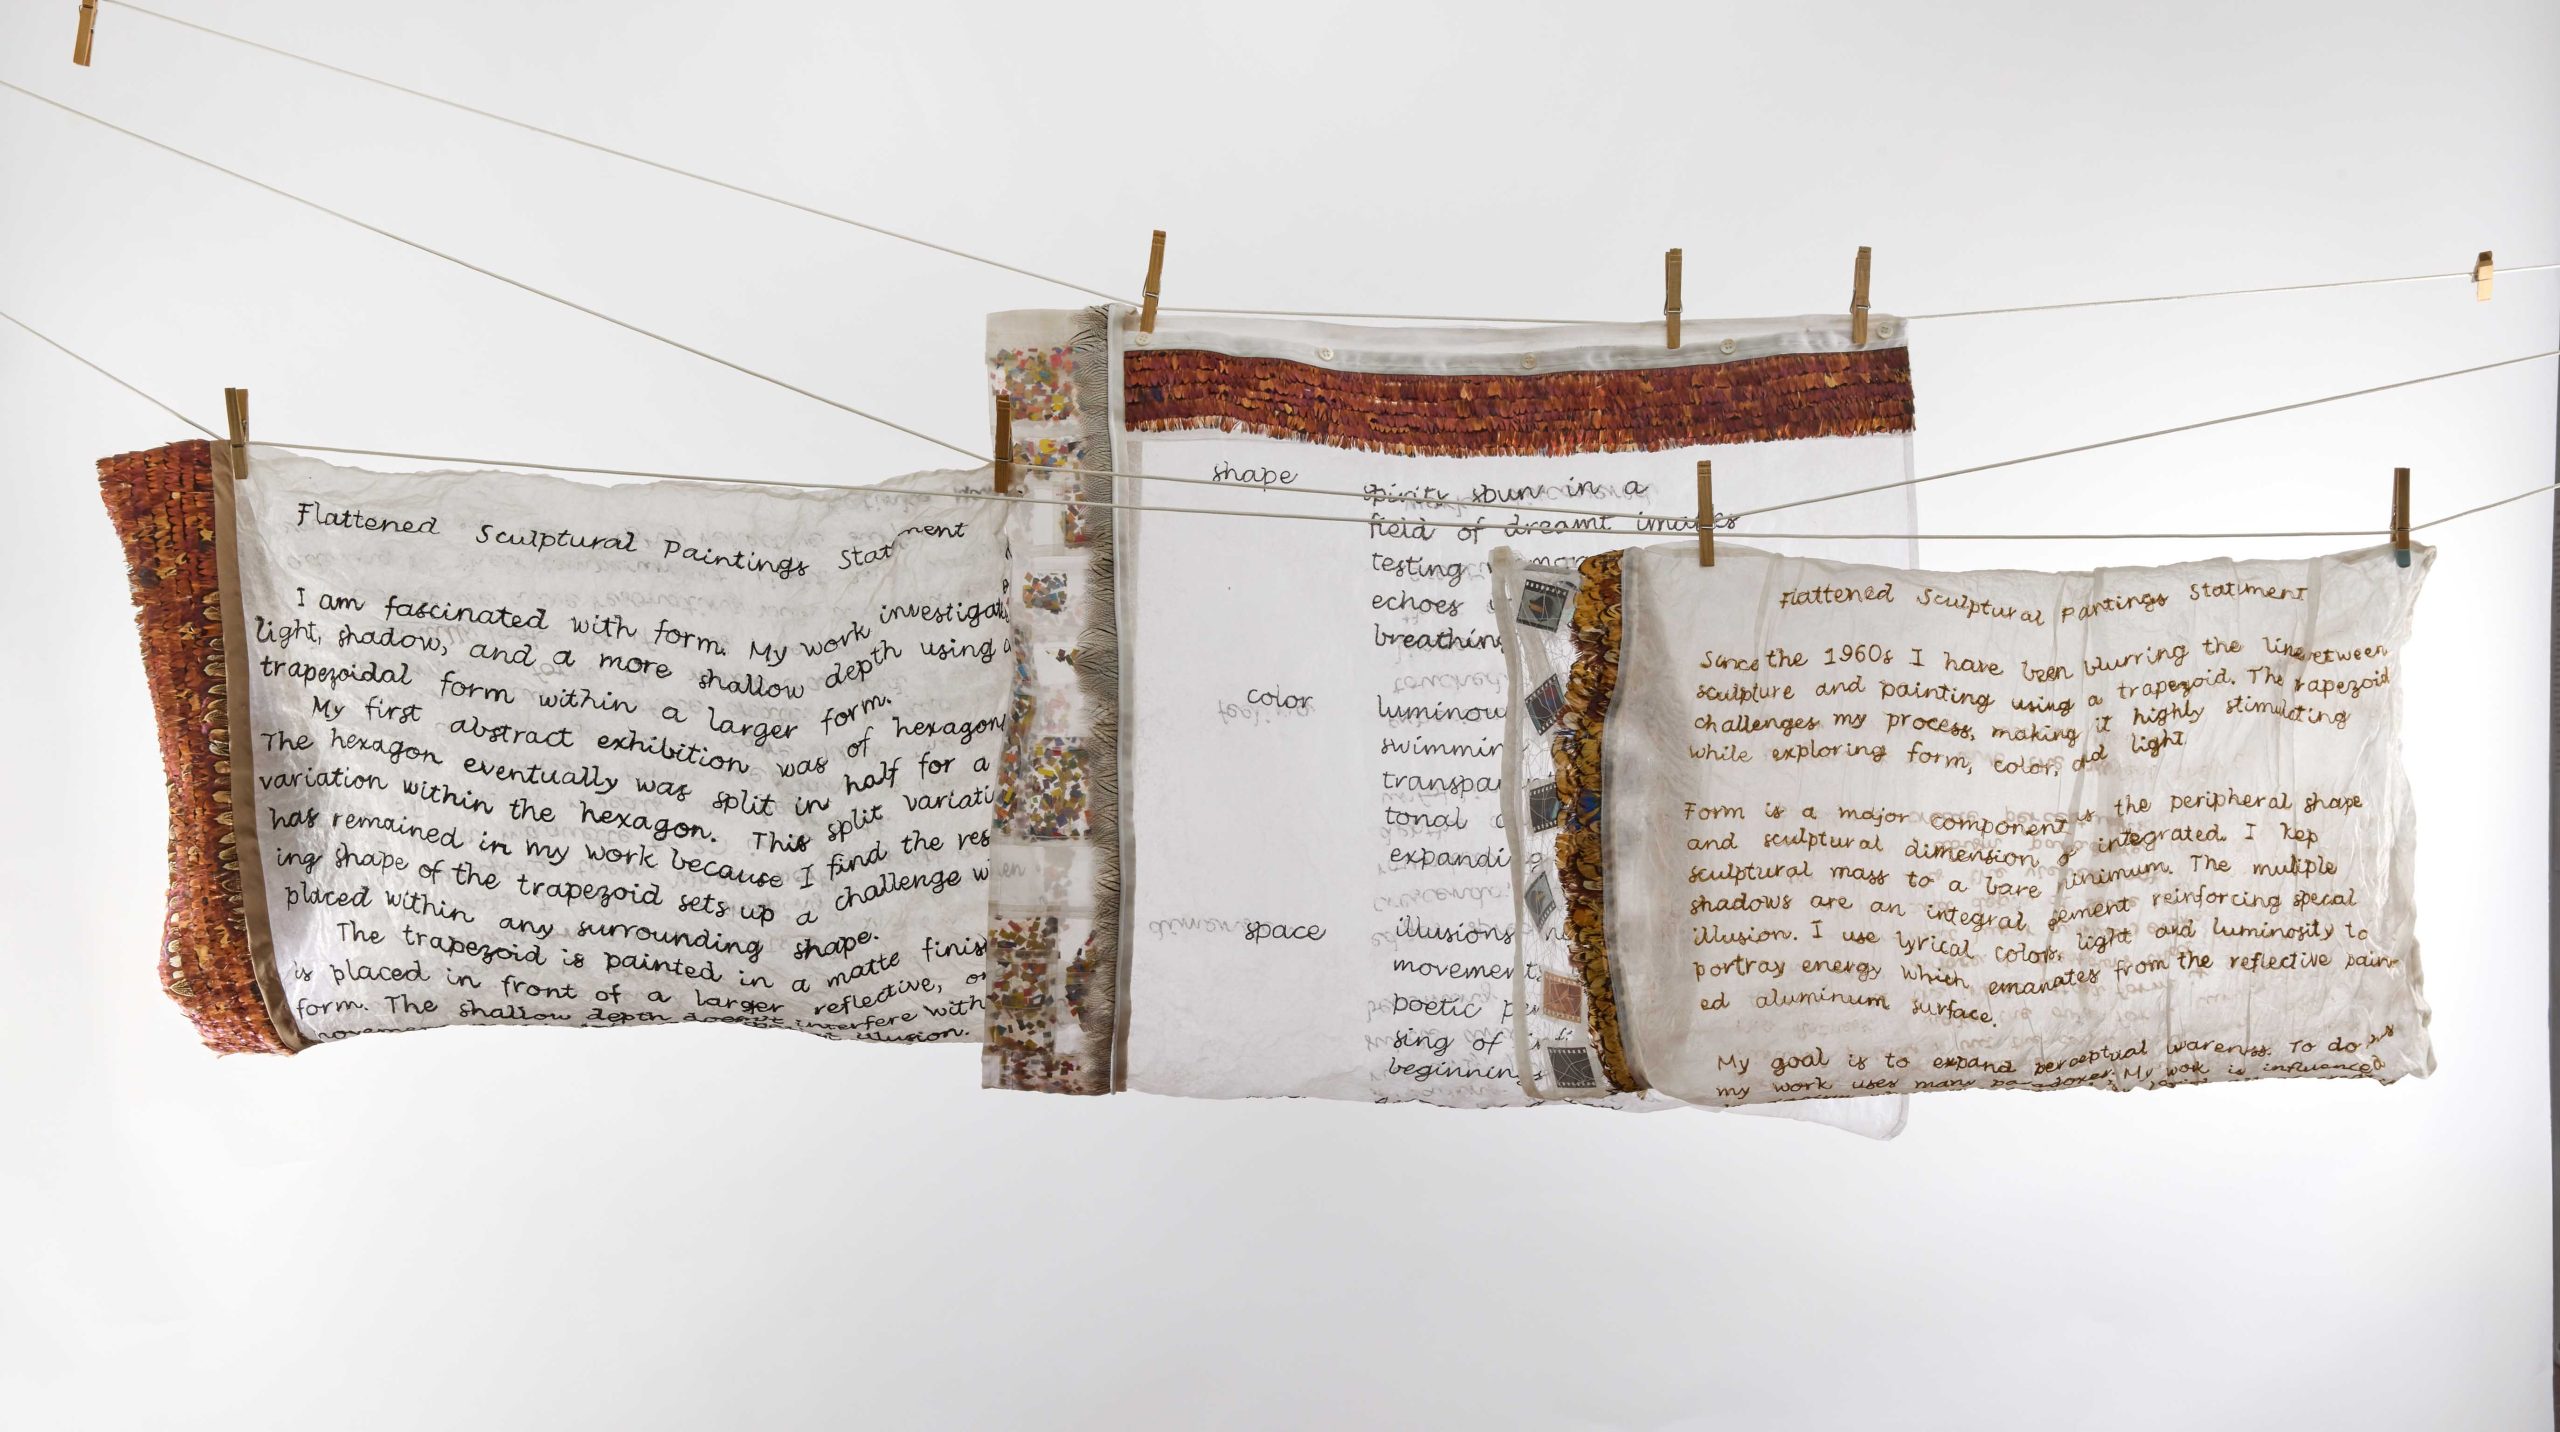 Flattened Sculptural Paintings Statement
I am fascinated with form. My work investigat
light, shadow, and a more shallow depth using a
trapezoidal form within a larger form.
My first abstract exhibition was of hexagons
The hexagon eventually was split in half for a
variation within the hexagon. This split variati
has remained in my work because I find the res
ing shape of the trapezoid sets up a challenge w
placed within any surrounding shape.
The trapezoid is painted in a matte finish
is placed in front of a larger reflective, or
form. The shallow depth doesn't interfere with
illusion.
shape
spirits spun in a
field of dreamt images
testing
echoes
breathing
color
luminou
swimmin
transpa
tonal
expanding
space
illusions
movement
poetic
sing of
beginning
Flattened Sculptural Paintings Statment
Since the 1960s I have been blurring the line between
sculpture and painting using a trapezoid. The rapezoid
challenges my process, making it highly stimulating
while exploring form, color, ad light
Form is a major component is the peripheral shape
and sculptural dimension is integrated. I kep
sculptural mass to a bare inimum. The muliple
shadows are an integral ement reinforcing specal
illusion. I use lyrical color, light and luminosity to
portray energy which emanates from the reflective pain
ed aluminum surface.
My goal is to expand perceptual wareness. To do
my work uses many My wok is influenced